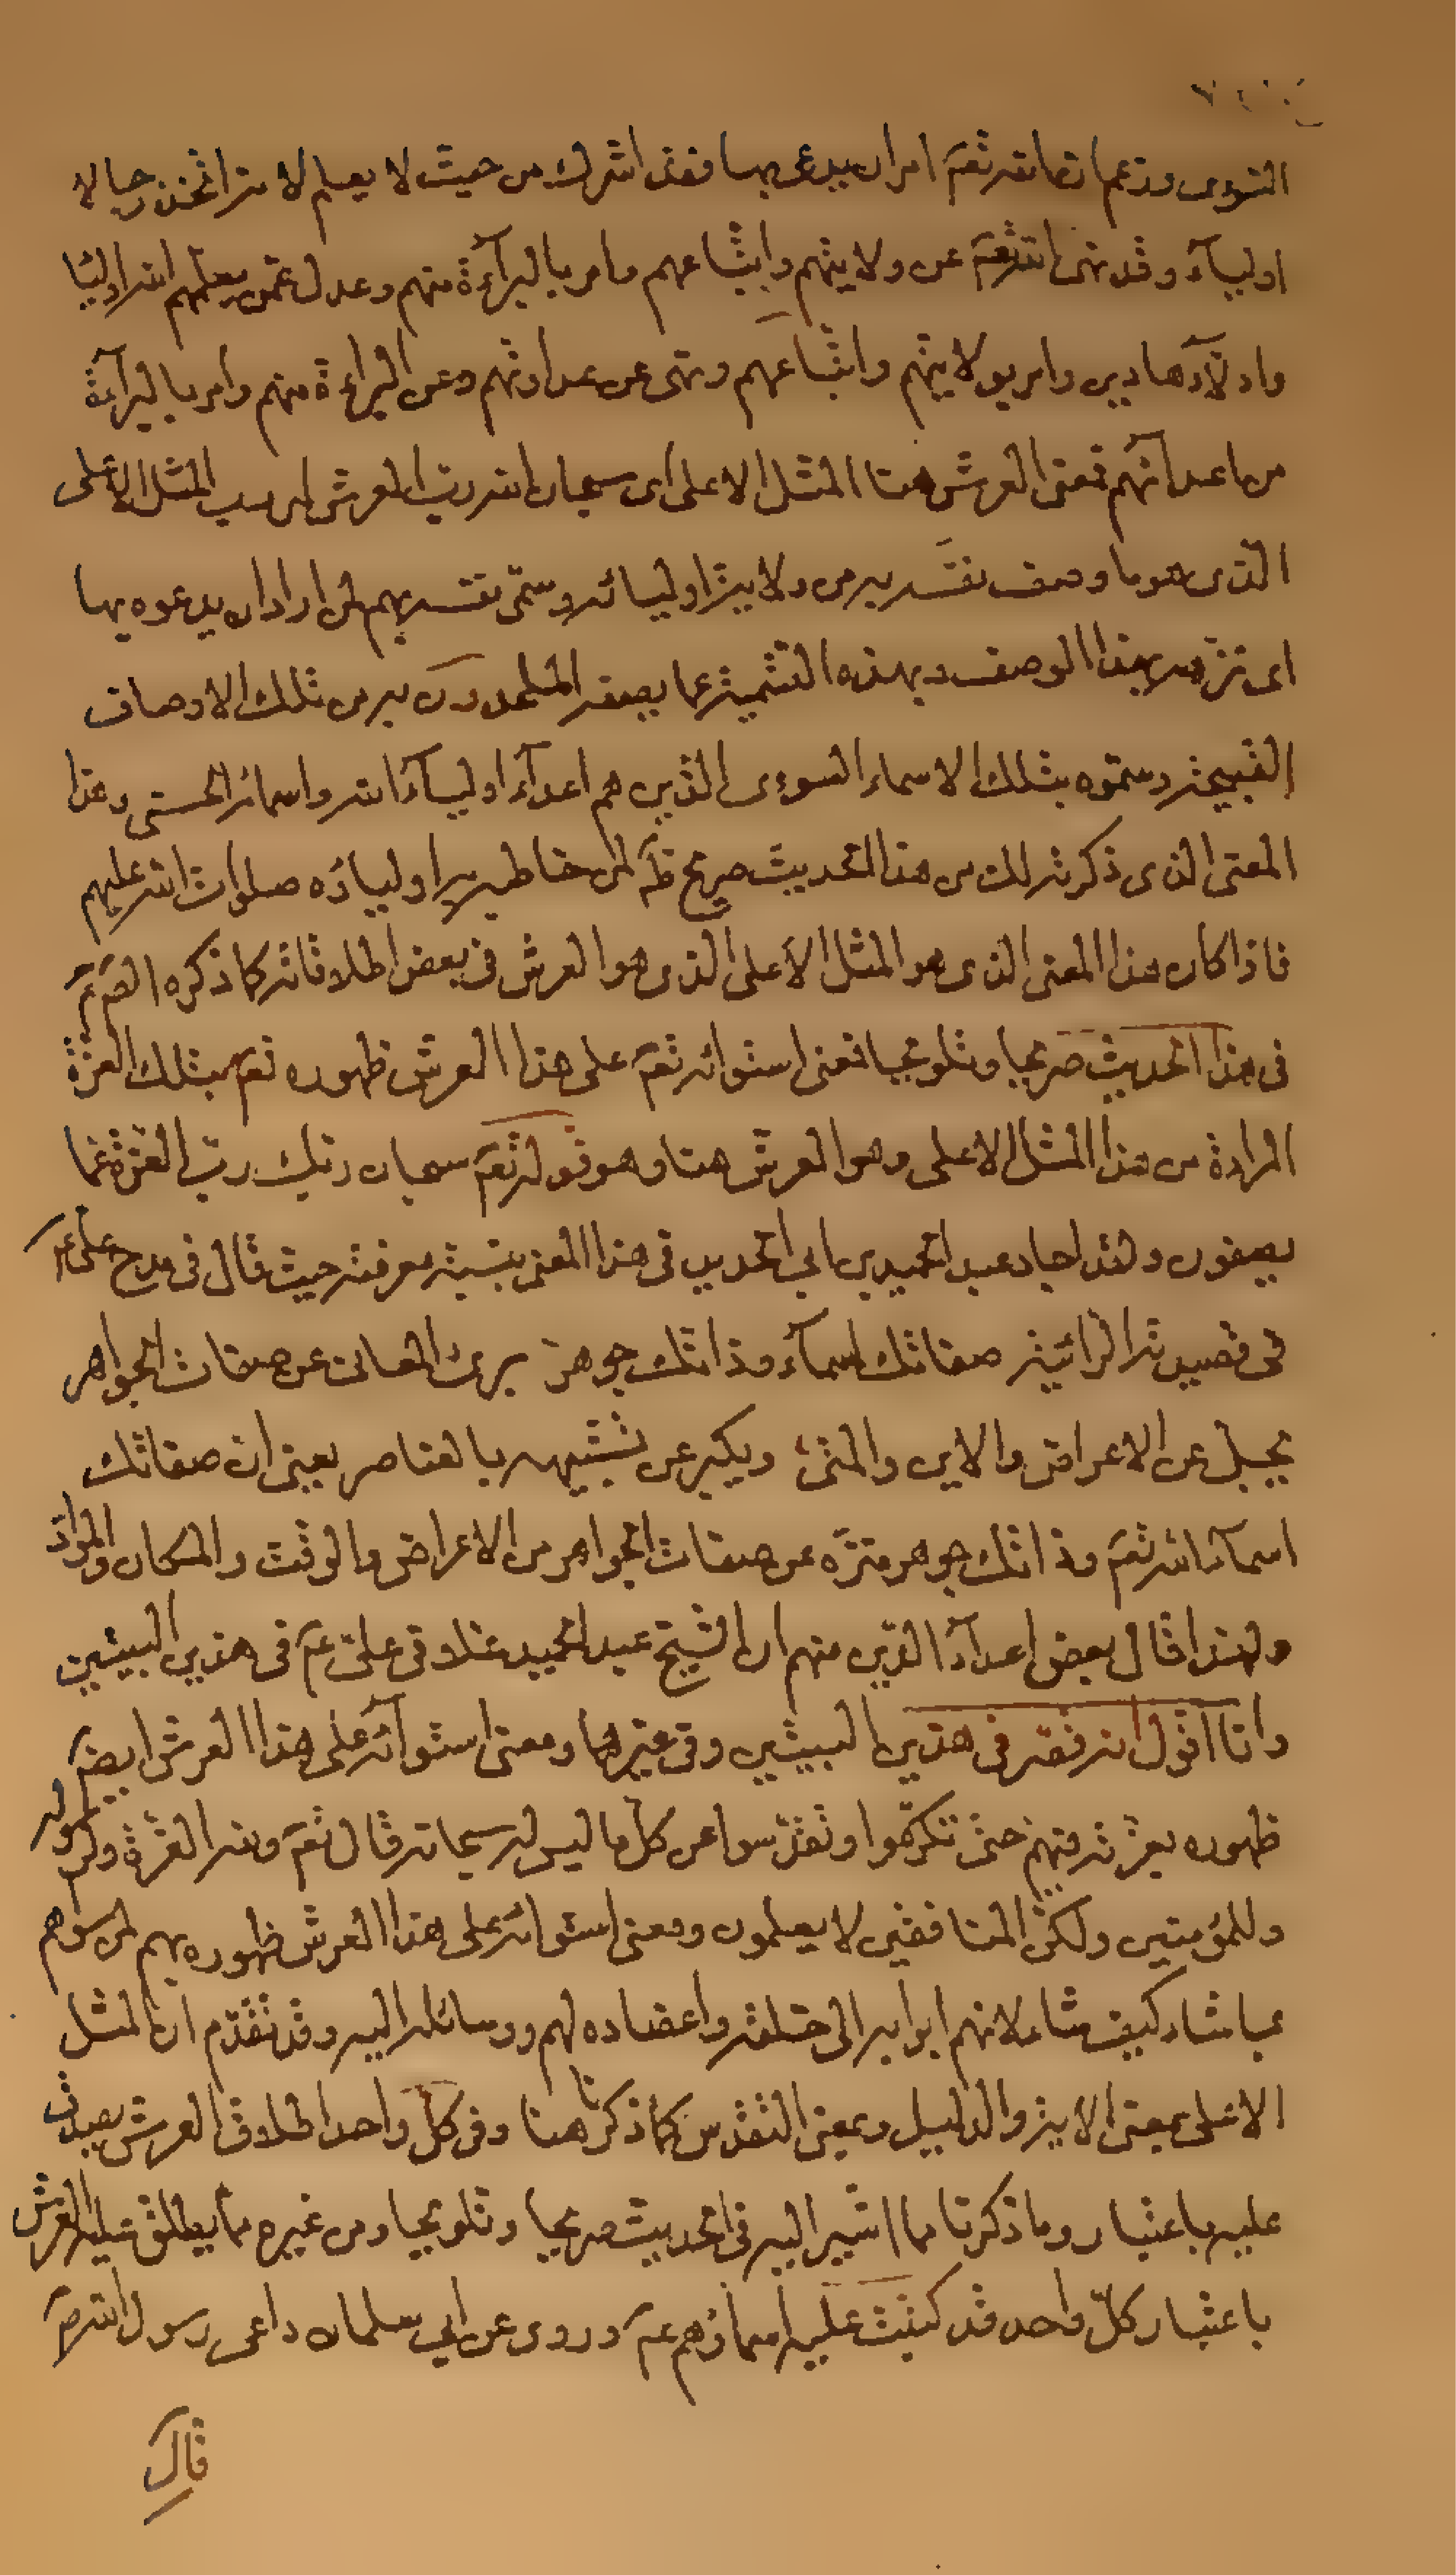 السوءى وزعم انها تعم امر ان يدعى بها فقد اشرك من حيث لا يعلم لانه اتخذ رجالا
اولياء وقد نهى الله تعم عن ولايتهم واتباعهم وامر بالبراءة منهم وعدل عمن جعلهم الله اولياء
وادلآء هادين وامر بولايتهم واتباعهم ونهى عن عداوتهم وعن البراءة منهم وامر بالبراءة
من اعدائهم فمعنى العرش هنا المثل الاعلى اى سبحان الله رب العرش اى رب المثل الاعلى
الذى هو ما وصف نفسه به من ولاية اوليائه وسمّى نفسه بهم لمن اراد ان يدعوه بها
اى تنزه بهذا الوصف وبهذه التسمية عما يصفه الملحدون به من تلك الاوصاف
القبيحة وسمّوه بتلك الاسماء السوءى الذين هم اعدآء اوليآء الله واسمائه الحسنى وهذا
المعنى الذى ذكرته لك من هذا الحديث صريح ظَم لمن خاطبه به اولياؤه صلوات الله عليهم
فاذا كان هذا المعنى الذى هو المثل الاعلى الذى هو العرش فى بعض اطلاقاته كما ذكره الصم عم
فى هذا الحديث صريحا وتلويحا فمعنى استوائه تعم على هذا العرش ظهوره تعم بتلك العزة
المرادة من هذا المثل الاعلى وهو العرش هنا وهو قوله تعم سبحان ربك ربّ العزّة عما
يصفون ولقد اجاد عبد الحميد بن ابى الحديد فى هذا المعنى بنسبة معرفته حيث قال فى مدح على عم
فى قصيدته الرائية صفاتك اسمآء وذاتك جوهر برئ المعانى عن صفات الجواهر
يجلّ عن الاعراض والاين والمتى ويكبر عن تشبيهه بالعناصر يعنى ان صفاتك
اسمآء الله تعم وذاتك جوهر منزّه عن صفات الجواهر من الاعراض والوقت والمكان والموادّ
ولهذا قال بعض اعدآء الدّين منهم ان الشيخ عبد الحميد غلا فى علىّ عم فى هذين البيتين
وانا اقول فى هذين البيتين وفى غيرهما ومعنى استوآئه على هذا العرش ايضم
ظهوره بعزّته فيهم حتى تكرّموا وتقدّسوا عن كلّ ما ليس له سبحانه قال تعم ولله العزّة ولرسوله
وللمؤمنين ولكنّ المنافقين لا يعلمون ومعنى استوائه على هذا العرش ظهوره بهم لمن سواهم
بما شاء كيف شاء لانهم ابوابه الى خلقه واعضاده لهم ووسائله اليه وقد تقدّم ان المثل
الاعلى بمعنى الاية والدليل وبمعنى التقدس كما ذكرنا هنا وفى كلّ واحد اطلاق العرش يصدق
عليه باعتبار وما ذكرنا مما اشير اليه فى الحديث صريحا وتلويحا ومن غيره مما يطلق عليه العرش
باعتبار كلّ واحد قد كتبت عليه اسماؤهم عم وروى عن ابى سلمان داعى رسول الله صم
قال